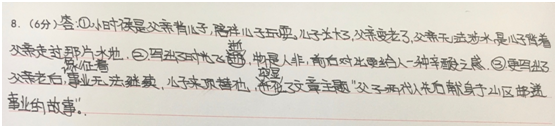 8.(6分)答:①小时候是父亲背儿子,陪伴儿子玩耍。儿子长大,父亲变老了,父亲无法涉水是儿子背着
父亲走过那片水地。②写出了时光飞逝,物是人非,前后对比更给人一种辛酸之感。③更写出了
象征着
父亲老白,事业无法继续,儿子来顶替他,突显了文章主题"父子两代人先后献身于山区邮递
事业的故事"。